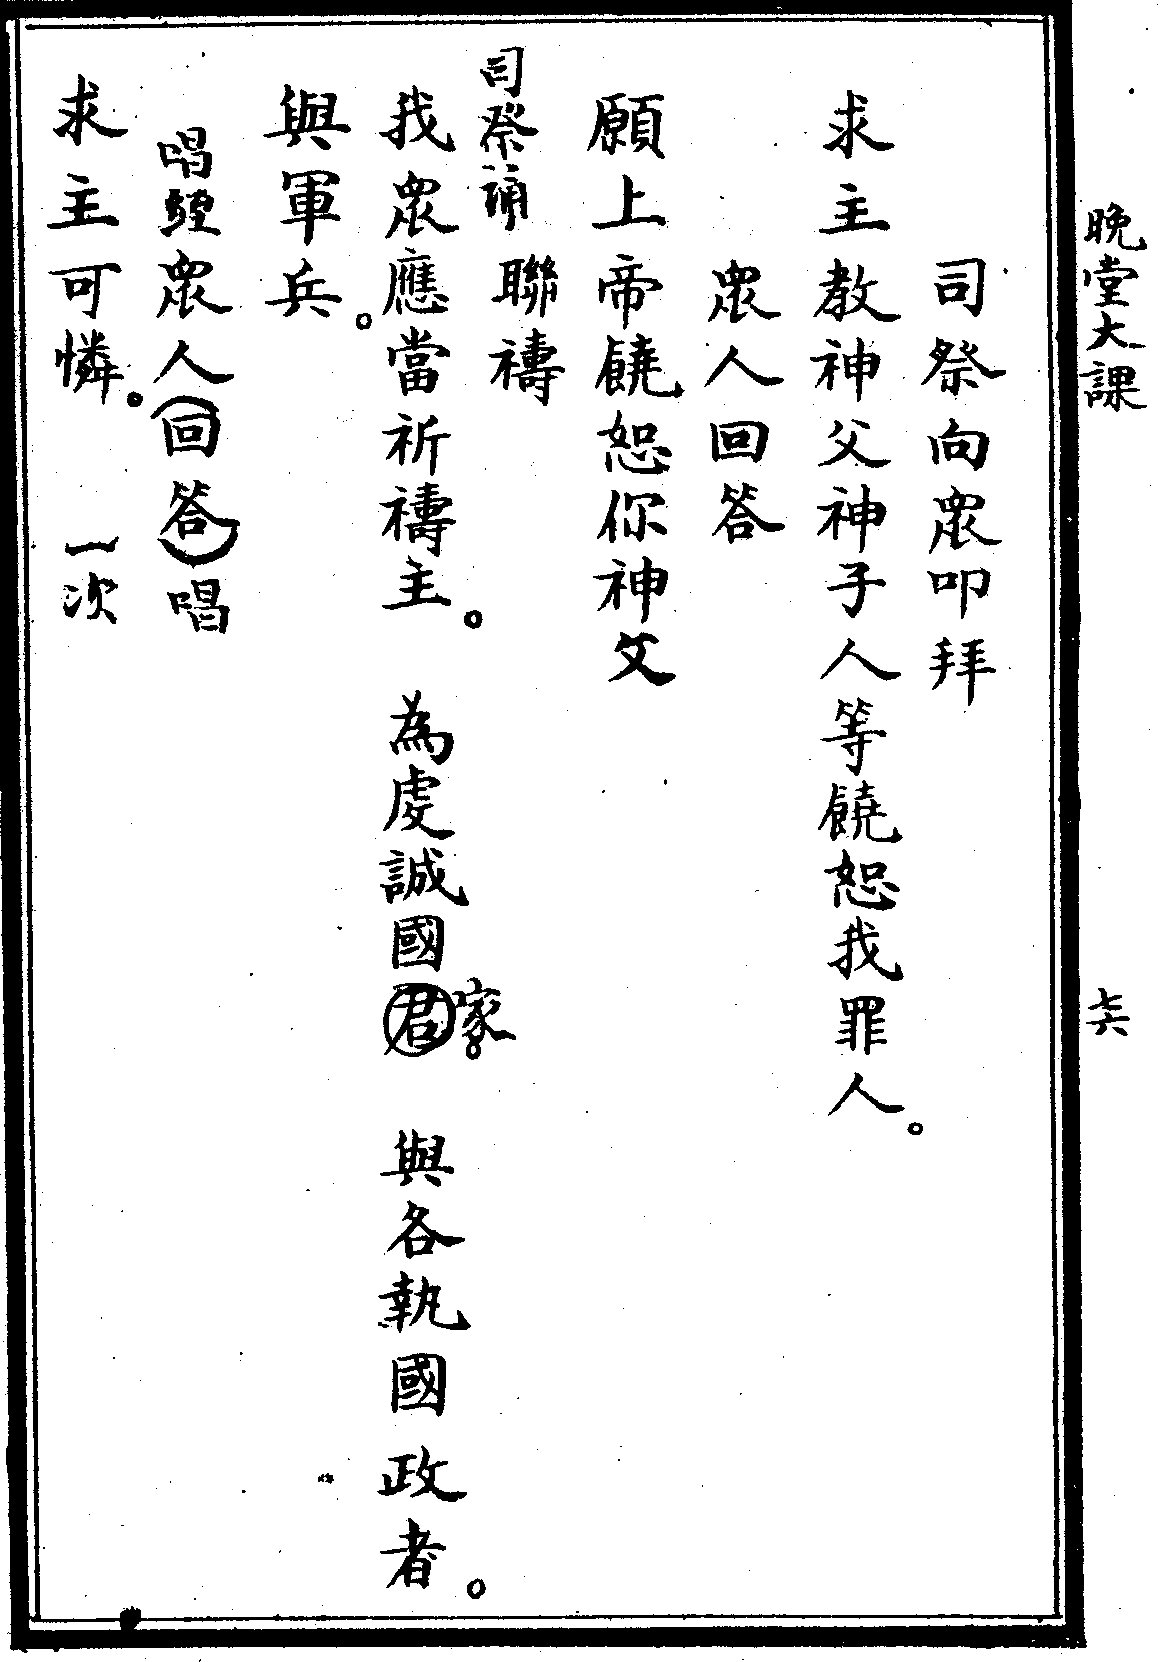 晚堂大課 七六
司祭向眾叩拜
求主教神父神子人等饒恕我罪人。
眾人回答
願上帝饒恕你神父
司祭誦 聯禱
我眾應當祈禱主。 為虔誠國君家。 與各執國政者。
與軍兵。
唱經眾人(回答)唱
求主可憐。 一次